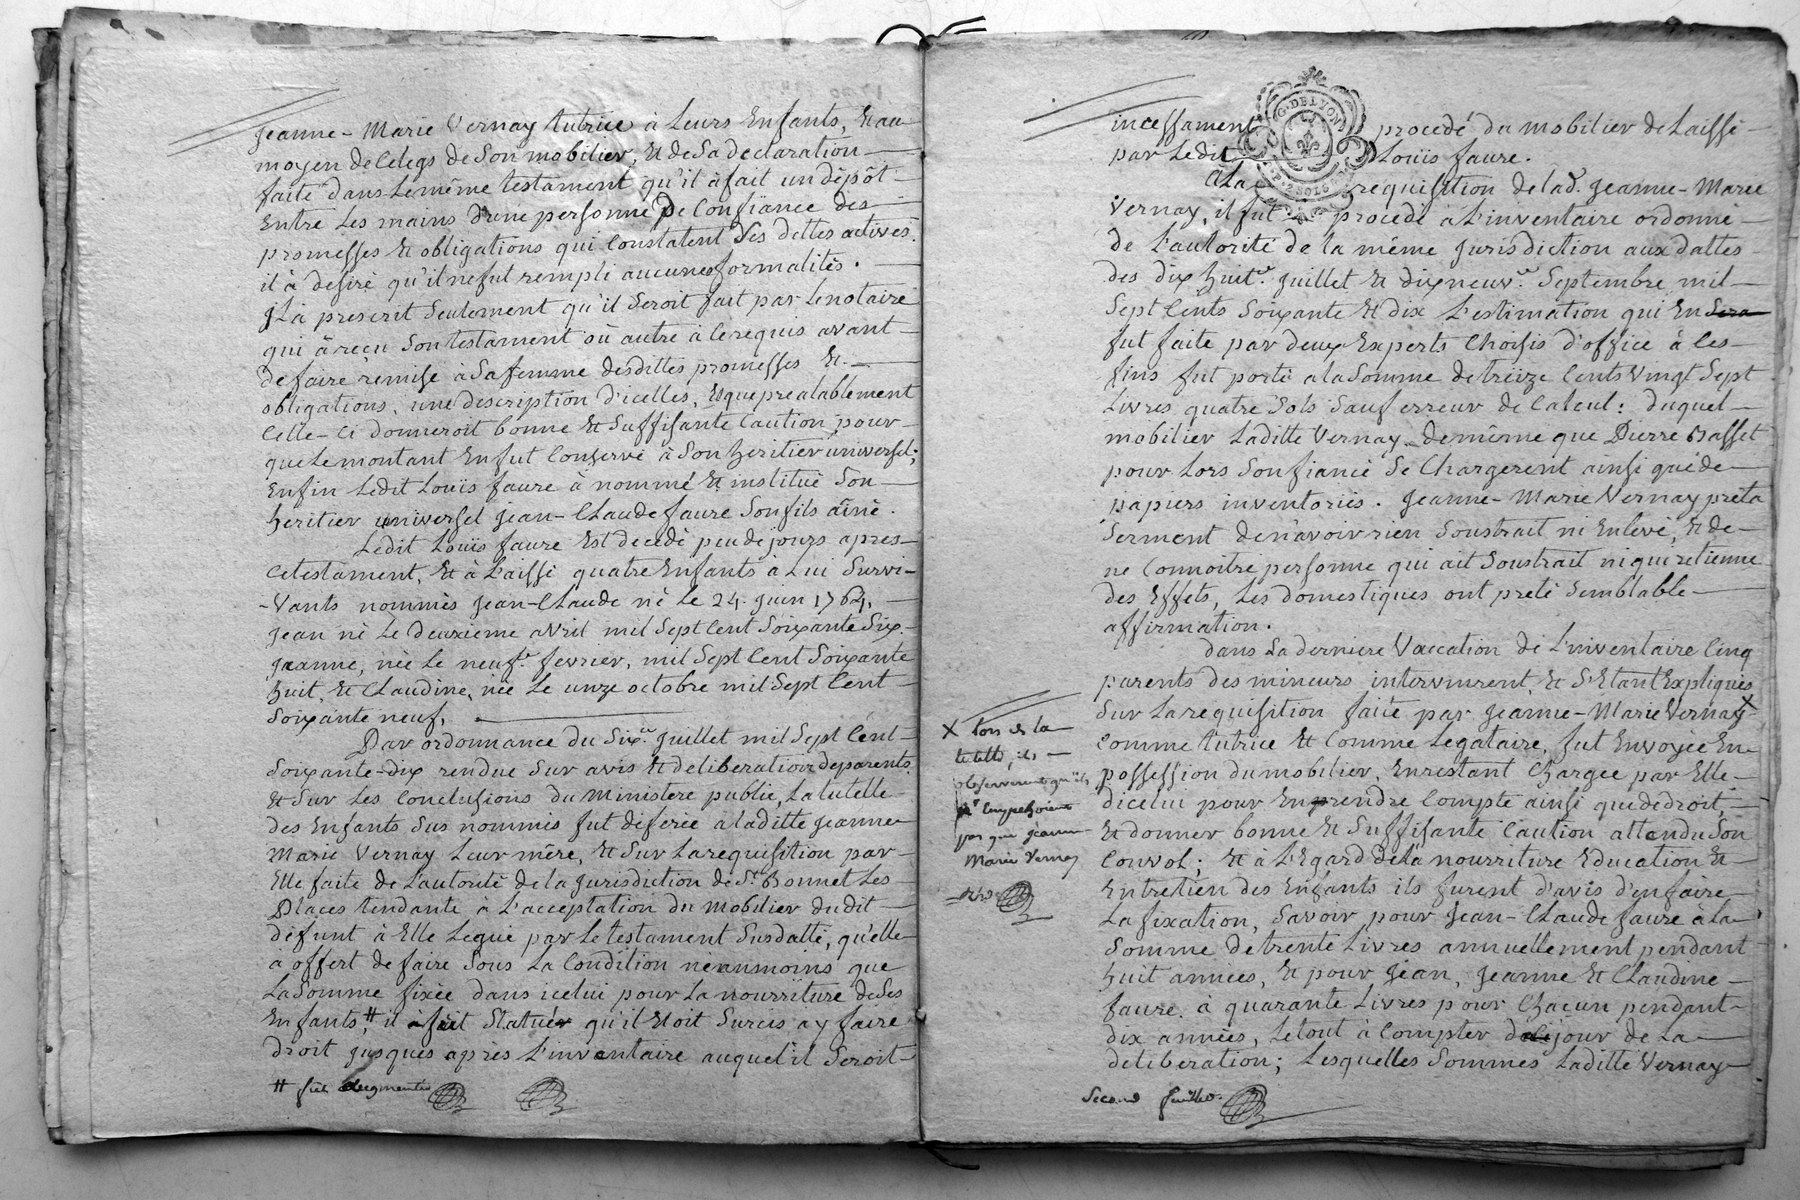 Jeanne-Marie Vernay tutrice à Leurs Enfants, Et au
moyen de Celegs de Son mobilier, Et de Sa declaration
faite dans Le même testament qu'il à fait un dépôt
Entre Les mains d'une personne De Confiance des
promesses Et obligations qui Constatent Ses dettes actives
il à desiré qu'il ne fut rempli aucunes formalités.
Il à prescrit Seulement qu'il Seroit fait par Le notaire
qui à reçu Son testament où autre à Ce requis avant
de faire remise a Sa femme desdittes promesses Et
obligations, une description d'icelles, Et que prealablement
Celle-Ci donneroit bonne Et Suffisante Caution pour
que Le montant En fut Conservé à Son heritier universel;
Enfin Ledit Louïs faure à nommé Et institué Son
heritier universel Jean-Claude faure Son fils aîné.
Ledit Louïs faure Est decedé peu de jours apres
Ce testament, Et à Laissé quatre Enfants à Lui Survi-
-Vants nommés Jean-Claude né Le 24. Juin 1764,
Jean né Le deuxieme avril mil Sept Cent Soixante Six.
Jeanne, née Le neufe. fevrier, mil Sept Cent Soixante
huit, Et Claudine, née Le unze octobre mil Sept Cent
Soixante neuf.
Par ordonnance du Six.e Juillet mil Sept Cent
Soixante-dix rendue Sur avis Et deliberation de parents
Et Sur Les Conclusions du Ministere public, La tutelle
des Enfants Sus nommés fut déferée à laditte Jeanne
Marie Vernay Leur mêre, Et Sur La requisition par
Elle faite de L'autorité de la Jurisdiction de St. Bonnet Les
Places tendante à L'acceptation du Mobilier dudit
défunt à Elle Legué par Le testament Susdatté, qu'elle
a offert de faire Sous La Condition néansmoins que
La Somme fixée dans icelui pour La nourriture de Ses
Enfants, # il fut Statué qu'il Etoit Surcis a y faire
droit Jusques après L'inventaire auquel il Seroit
# fut augmentée
incessament procedé du mobilier de Laissé
par Ledit Louïs faure.
G. DE LYON
P. 2 SOLS
A La requisition de lad. Jeanne-Marie
Vernay, il fut procedé à L'inventaire ordonné
de L'autorité de la même Jurisdiction aux dattes
des dix huit.e Juillet Et dixneuv.e Septembre mil
Sept Cents Soixante Et dix L'estimation qui En Sera
fut faite par deux Experts Choisis d'office à Ces
fins fut porté a la Somme de treize Cents Vingt Sept
Livres quatre Sols Sauf erreur de Calcul: duquel
mobilier Laditte Vernay de même que Pierre Basset
pour Lors Son fiancé Se Chargerent ainsi que de
papiers inventoriés. Jeanne-Marie Vernay prêta
Serment de n'avoir rien Soustrait ni Enlevé, Et de
ne Connoitre personne qui ait Soustrait ni qui retienne
des Effets, Les domestiques ont preté Semblable
affirmation.
dans La derniere Vaccation de L'inventaire Cinq
parents des mineurs intervinrent, Et S'Etant Expliqués
Sur La requisition faite par Jeanne-Marie Vernay X
Comme tutrice Et Comme Legataire, fut Envoyée En
possession du mobilier, En restant Chargée par Elle
dicelui pour En prendre Compte ainsi que de droit,
Et donner bonne Et Suffisante Caution attendu Son
Convol; Et à L'Egard de La nourriture Education Et
Entretien des Enfants ils furent d'avis d'en faire
La fixation, Savoir pour Jean-Claude faure à La
Somme de trente Livres annuellement pendant
huit années, Et pour Jean, Jeanne Et Claudine
faure. à quarante Livres pour Chacun pendant
dix années, Le tout à Compter du jour de La
deliberation; Lesquelles Sommes Laditte Vernay
X lors de la
tutelle, ils
observerent qu'ils
n'Empechoient
pas que Jeanne
Marie Vernay
Second feuillet.